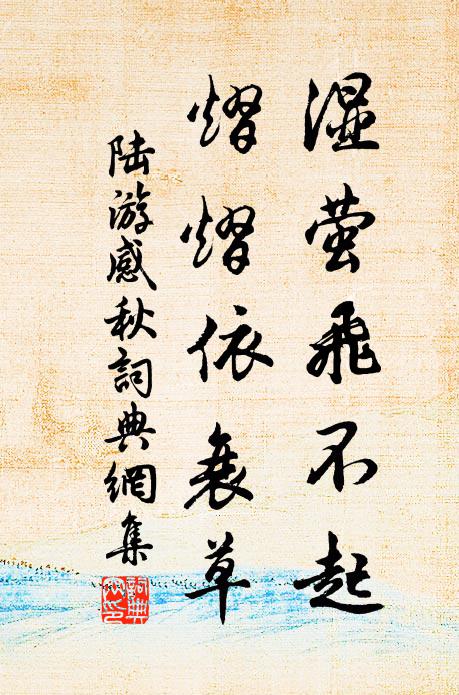 湿萤飛不起
熠熠依衰草
陆游感秋詞典網集